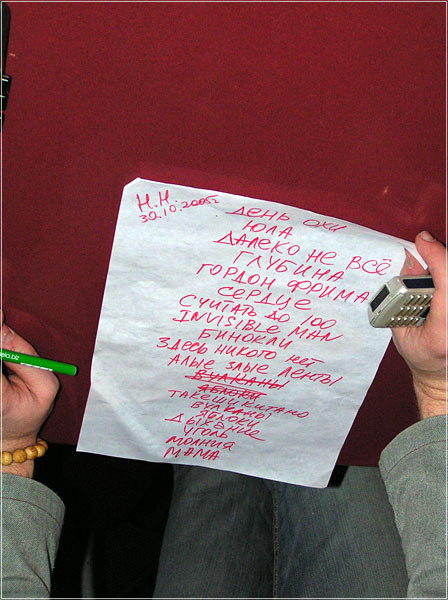 Н.Н.
30.10.2005г
ДЕНЬ ОХИ
ЮЛА
ДАЛЕКО НЕ ВСЁ
ГЛУБИНА
ГОРДОН ФРИМАН
СЕРДЦЕ
СЧИТАТЬ ДО 100
INVISIBLE MAN
БИНОКЛИ
ЗДЕСЬ НИКОГО НЕТ
АЛЫЕ ЗЛЫЕ ЛЕНТЫ
ВУЛКАНЫ
ЯБЛОКИ
ТАКЕШИ КИТАНО
ВУЛКАНЫ
ЯБЛОКИ
ДЫХАНИЕ
УГОЛЬ
МОЛНИЯ
МАМА